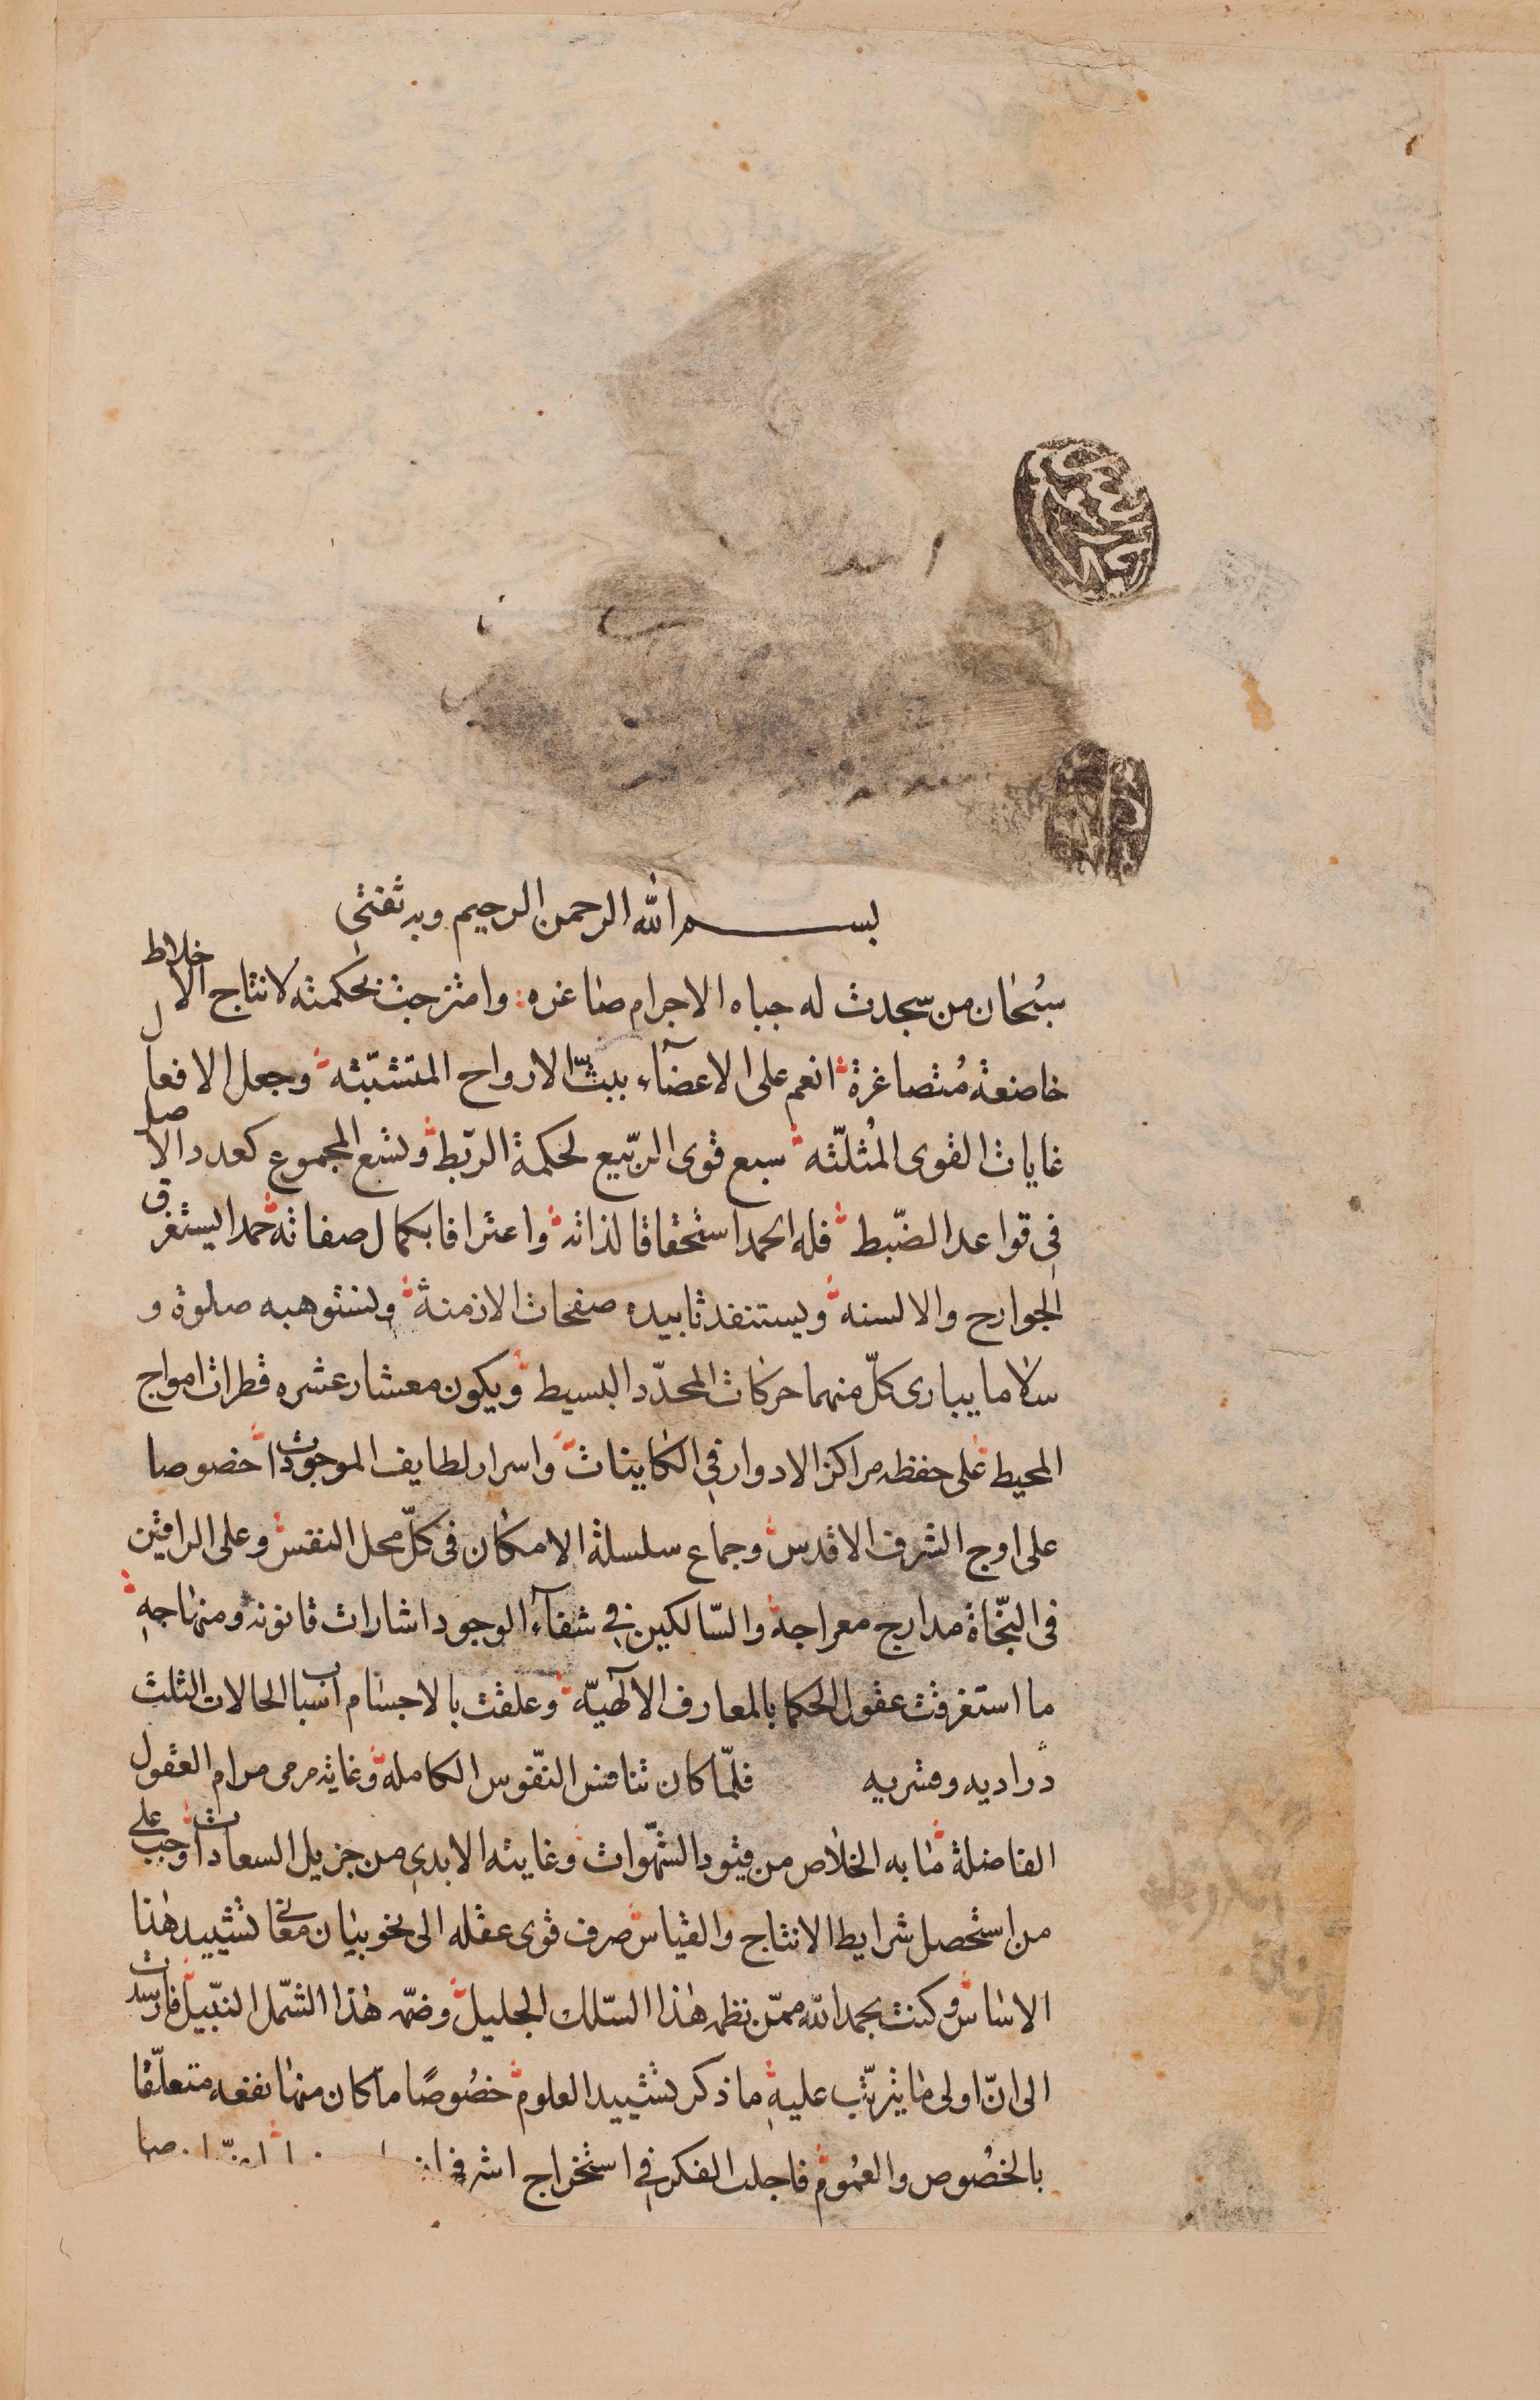 بسم الله الرحمن الرحيم وبه ثقتى
سبحان من سجدت له جباه الاجرام صاغره وامتزجت بحكمته لانتاج الاخلاط
خاضعة مُتصاغرة انعم على الاعضآء ببثّ الارواح المتشبّثه وجعل الافعال
غايات القوى المُثلّثه سبع قوى الربّيع لحكمة الرّبط وتشع المجموع كعدد الاصل
فى قواعد الضّبط فله الحمد استحقاقا لذاته واعترافا بكمال صفاته حمدا يستغرق
الجوارح والالسنه ويستنفد تابيده صفحات الازمنة ونستوهبه صلوة و
سلاما يبارى كلّ منهما حركات المحدّد البسيط ويكون معشار عشره قطرات امواج
المحيط على حفظه مراكز الادوار فى الكاينات واسرار لطايف الموجودات خصوصا
على اوج الشرف الاقدس وجماع سلسلة الامكان فى كلّ محل انفس وعلى الراقين
فى النجّاة مدارج معراجه والسّالكين فى شفآء الوجود اشارات قانونه ومنهاجهِ
ما استغرقت عقول الحكما بالمعارف الآلهيّه وعلقت بالاجسام اسباب الحالات الثلث
فلمّا كان تنافس النّفوس الكامله وغاية مرمى مرام العقول
الفاضلة ما به الخلاص من قيود الشّهوات وغايته الابدى من جزيل السعادات وجب على
من استحصل شرايط الانتاج والقياس صرف قوى عقله الى نحو بيان معانى تشييد هذا
الاساس وكنت بحمد الله ممّن نظمه هذا السّلك الجليل وضمّه هذا الشّمل النّبيل فارسدت
الى انّ اولى ما يترتّب عليهِ ما ذكر تشييد العلوم خصُوصًا ما كان منها نفعه متعلّقا
بالخصُوص والعمُوم فاجلت الفكر فى استخراج اشرفها